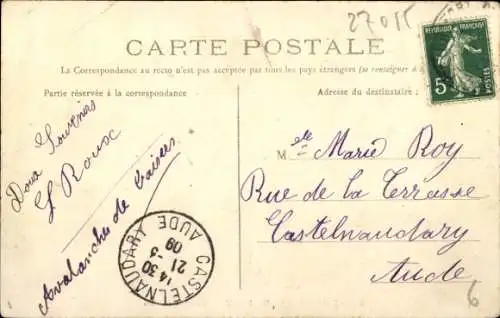 27011
CARTE POSTALE
La Correspondance au recto n'est pas acceptée par tous les pays étrangers (se renseigner à
Partie réservée à la correspondance
Adresse du destinataire :
REPUBLIQUE FRANÇAISE
5
POSTES
Doux Souvenirs
S Roux
Avalanches de baisers
Melle Marie Roy
Rue de la Terrasse
Castelnaudary
Aude
CASTELNAUDARY
AUDE
14 30
21 -3
09
6